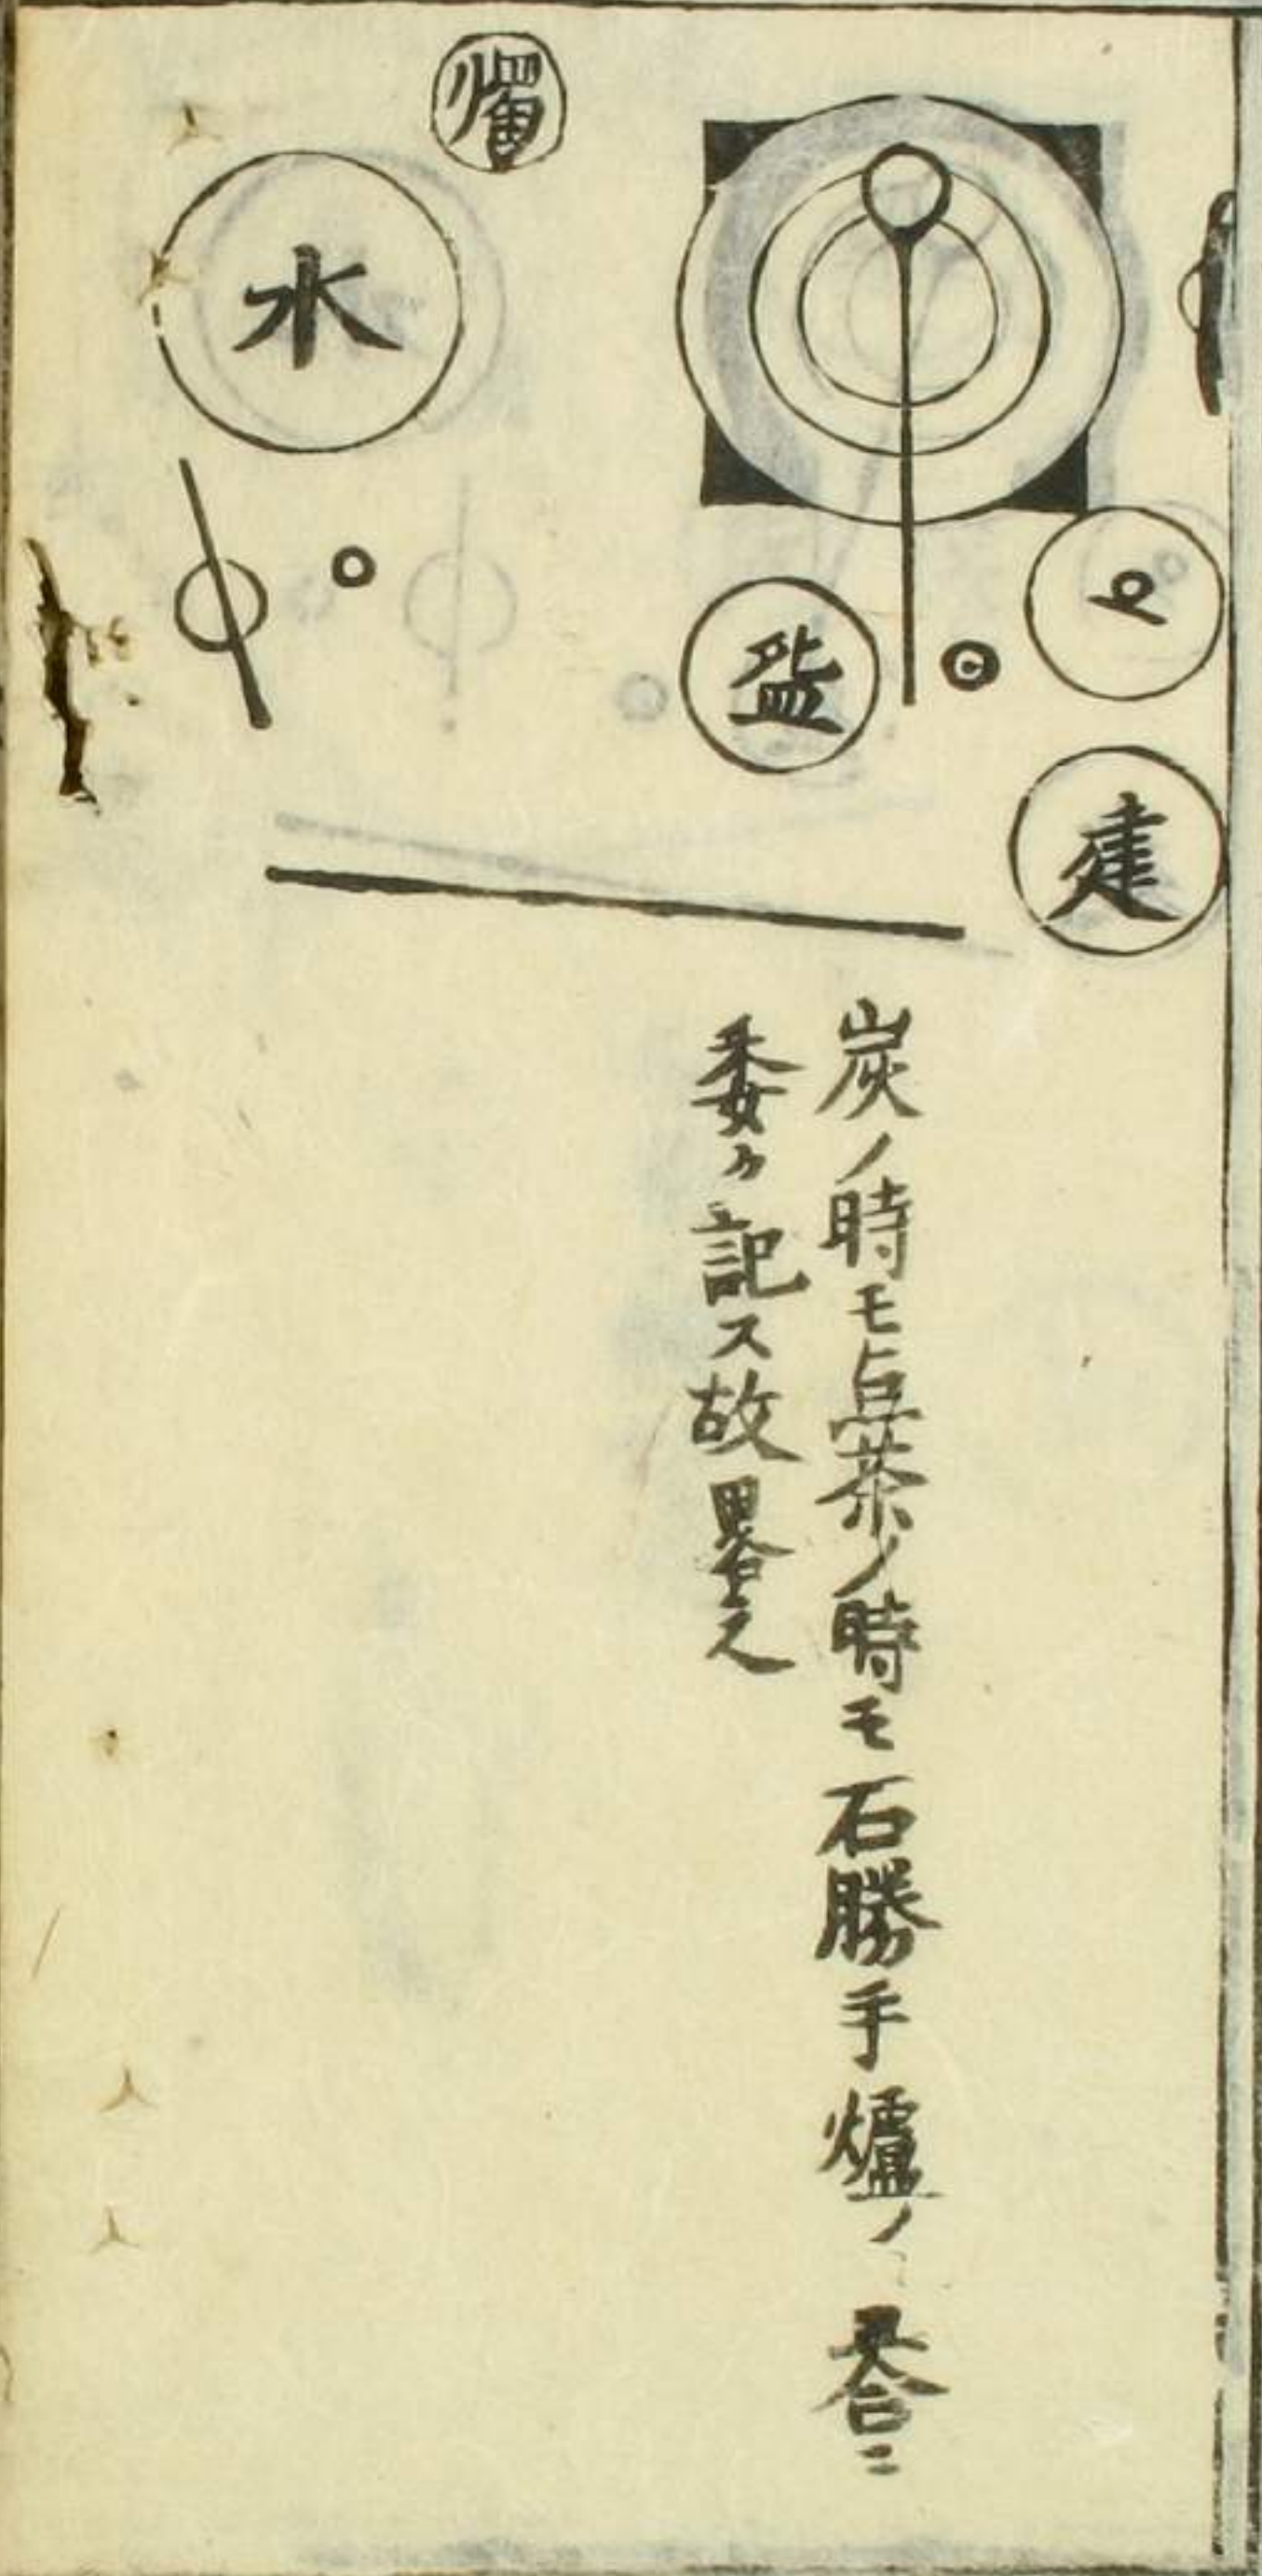 燭
水
盌
建
炭ノ時モ点茶ノ時モ石勝手爐ノ合ニ
委ク記ス故畧之